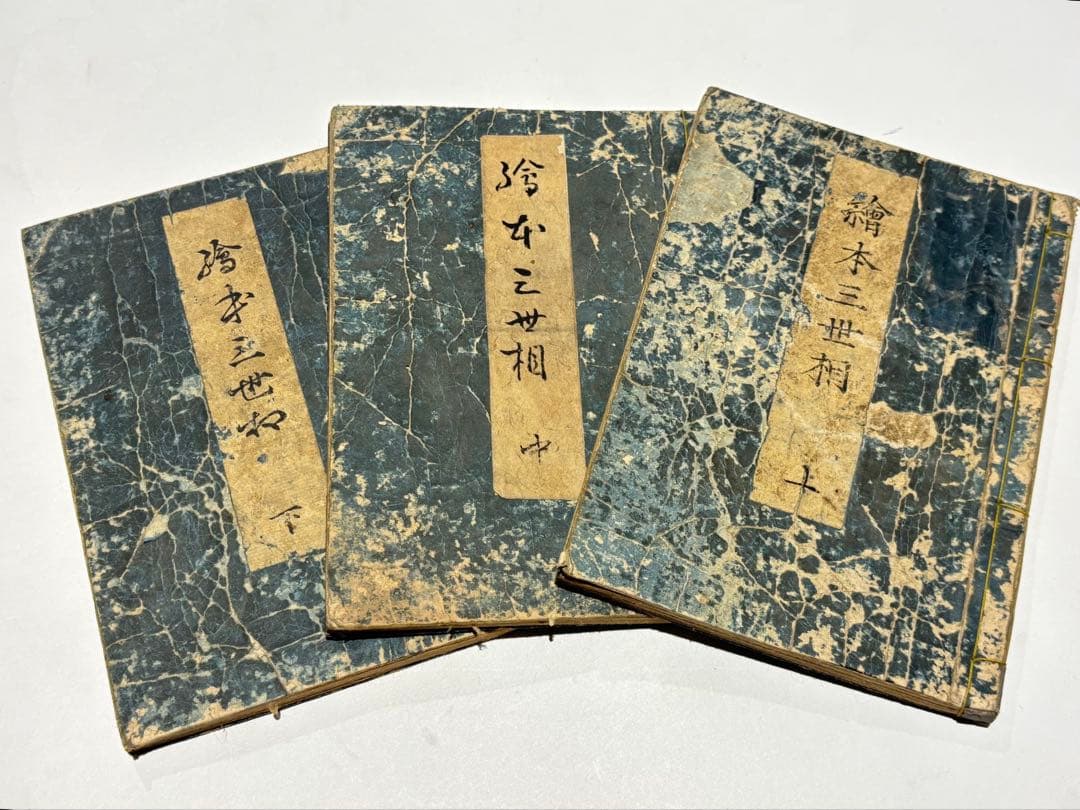 繪本三世相 上
繪本三世相 中
繪本三世相 下